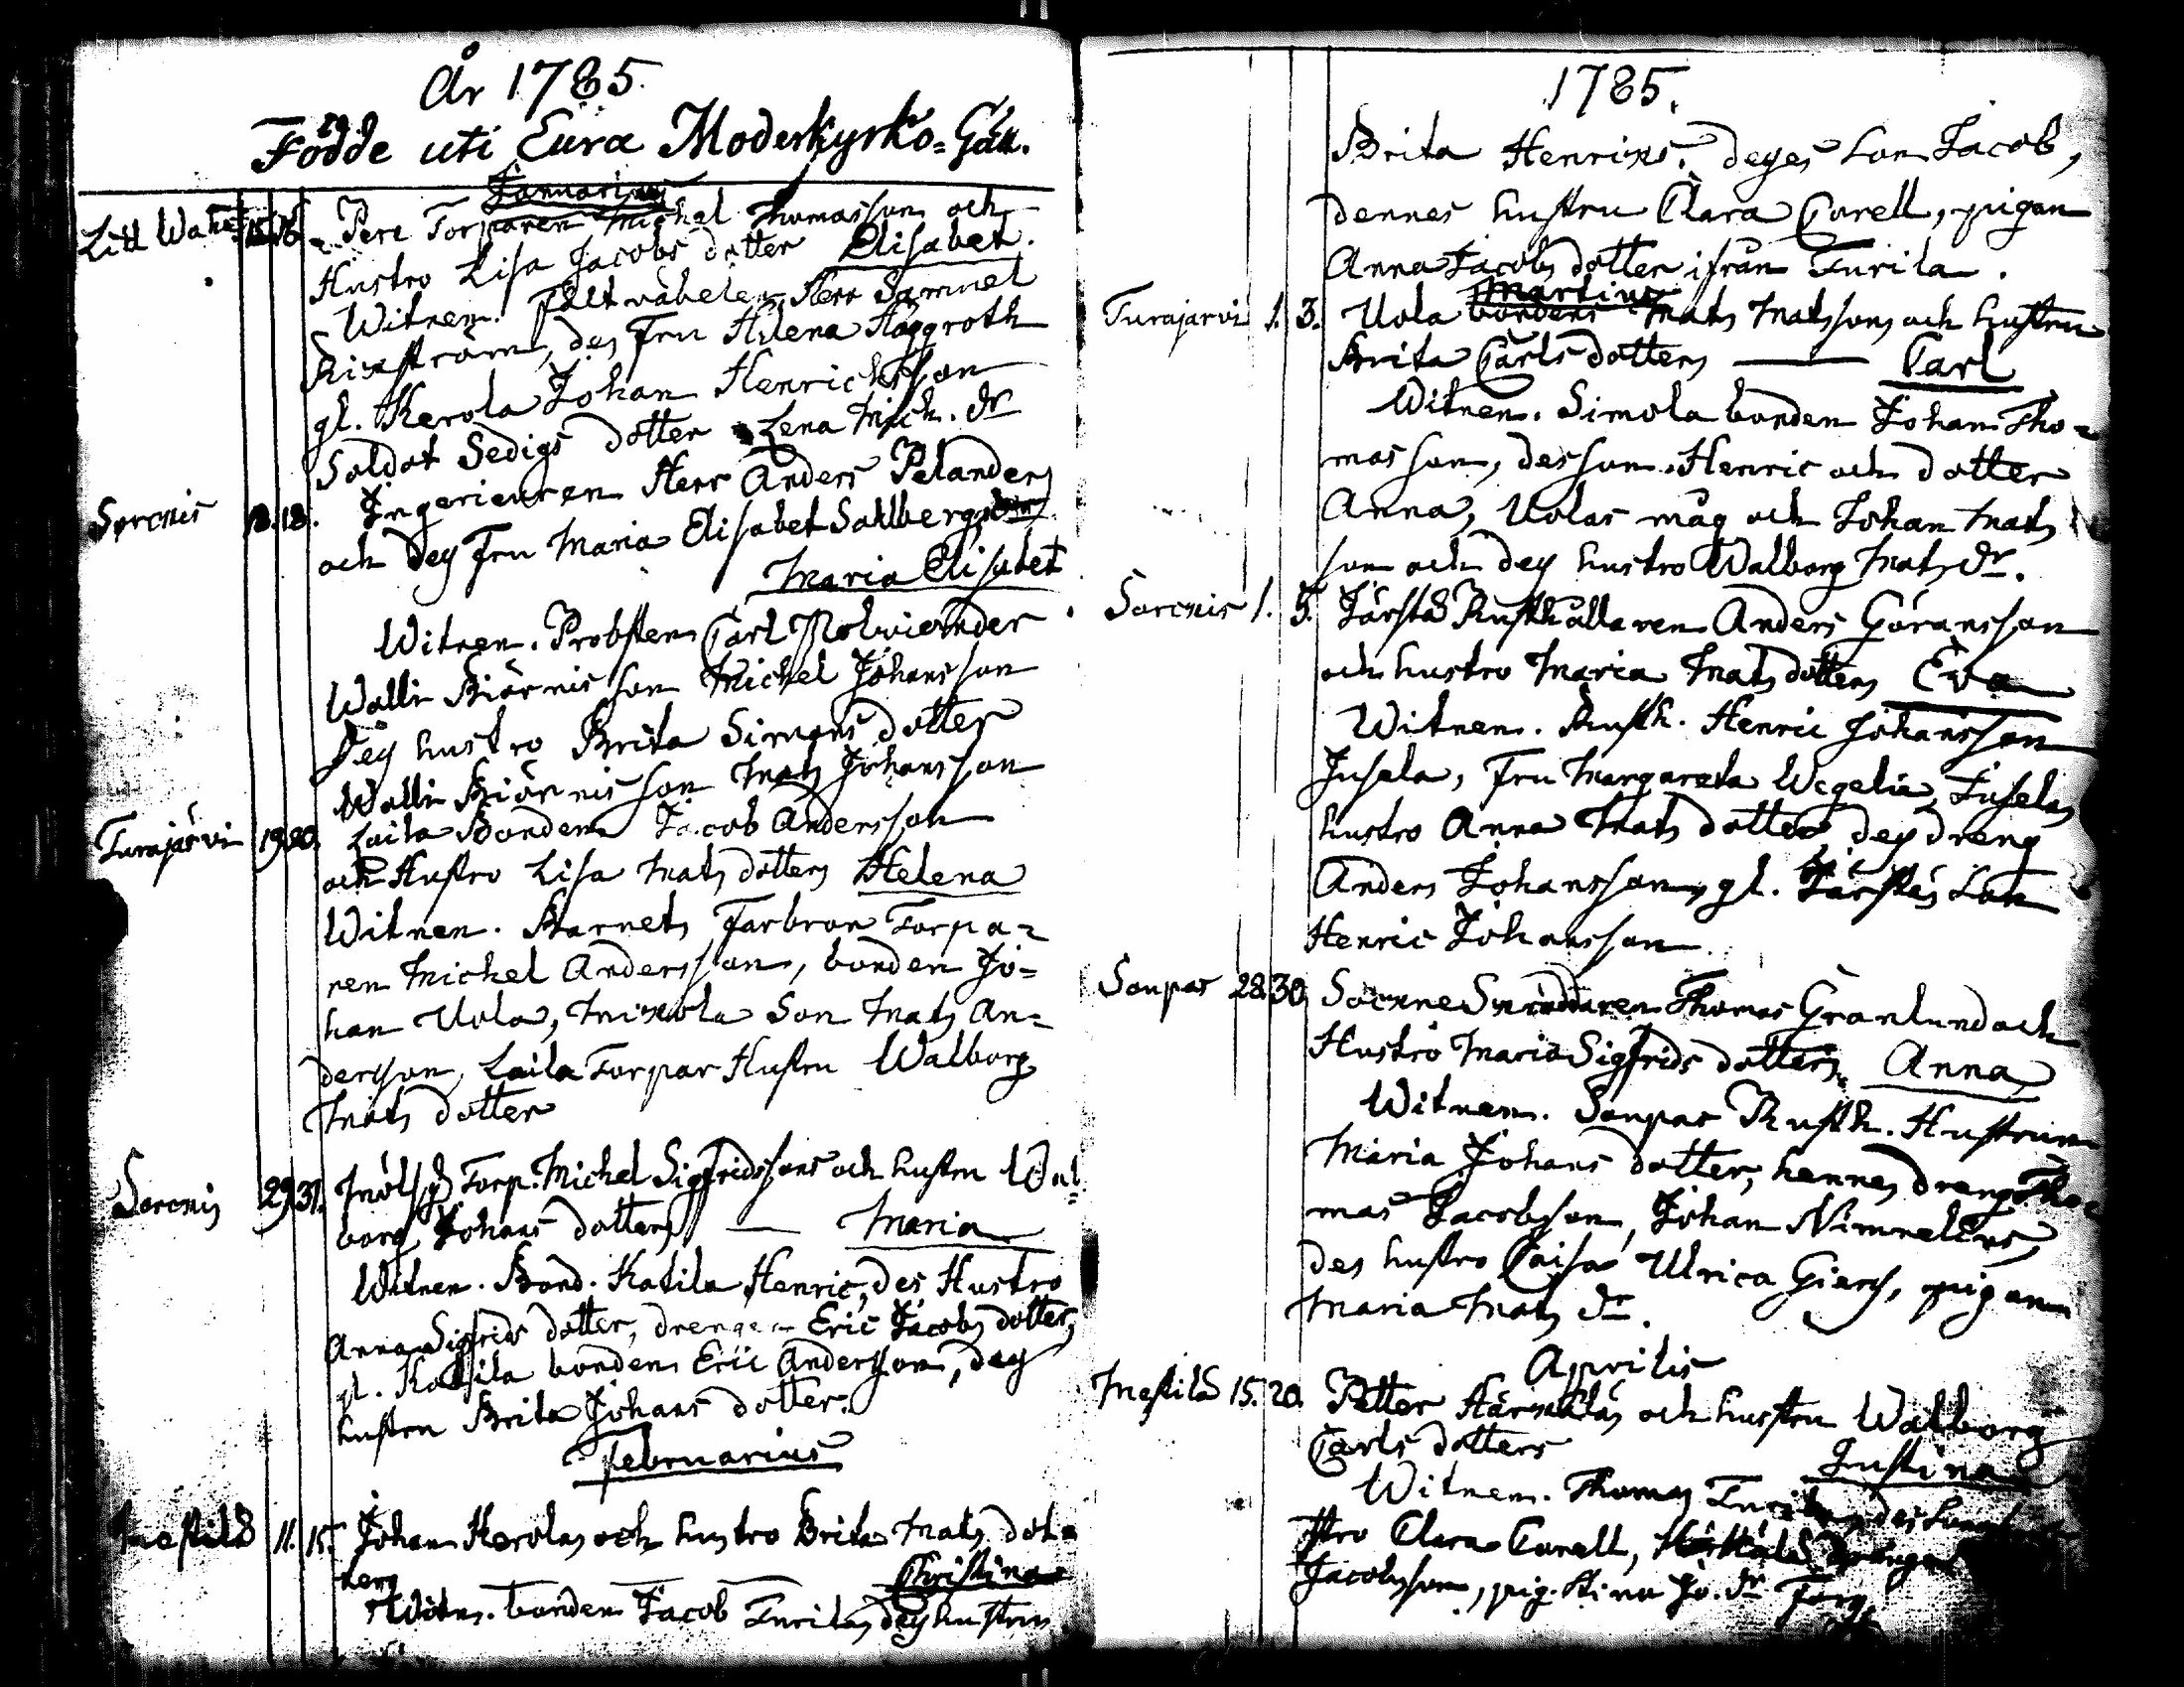 År 1785.
Födde uti Eura Moderkyrko-Gäll.
Januarius
Litt Wahe 15. 16. Pere Torparen Michel Thomasson och
Hustro Lisa Jacobs dotter Elisabet.
Witnen. Fältwäbelen Herr Samuel
Rixström, des Fru Helena Häggroth
gl. Kerola Johan Henrichsson
Soldat Sedigs dotter Lena Mich. dr
Sorcnis 18. 18. Ingerieuren Herr Anders Pelanders
och dess Fru Maria Elisabet Sahlbergs
Maria Elisabet
Witnen. Probsten Carl
Walli Biörnis son Michel Johansson
Dess hustro Brita Simons dotter
Walli Biörnis son Mats Johansson
Turajärvi 19. 20. Laila Bonden Jacob Andersson
och Hustro Lisa Mats dotters Helena
Witnen. Barnets Farbror Torpa=
ren Michel Andersson, bonden Jo=
han Uola, Mixola Son Mats An=
dersson, Laila Torpar Hustru Walborg
Mats dotter
Sorcnis 29. 31. Torp. Michel Sigfridssons och hustru Wal=
borg Johans dotters — Maria
Witnen. Bond. Katila Henric, des Hustro
Anna Sigfrids dotter, drengen Eric Jacobs dotter,
gl. Kattila bonden Eric Andersson, dess
hustru Brita Johans dotter.
Februarius
Mestilä 11. 15. Johan Kerolas och hustro Brita Mats dot=
ters Christina
Witn. bonden Jacob Turilas, dess hustru
1785.
Brita Henrixs. dess son Jacob,
dennes hustru Clara Carell, pigan
Anna Jacobs dotter ifrån Turila.
Martius
Turajarvi 1. 3. Uola bondens Mats Matssons och hustru
Brita Carls dotters — Carl
Witnen. Simola bonden Johan Tho=
masson, des son Henric och dotter
Anna, Uolas måg och Johan Mats
son och dess hustro Walborg Mats dr.
Sorcnis 1. 5. Järstä Rusthållaren Anders Göransson
och hustro Maria Mats dotters Eva
Witnen. Rusth. Henric Johansson
Jusela, Fru Margareta Wegelia, Juselas
hustro Anna Mats dotter, dess dreng
Anders Johansson, gl. Järstäs Son
Henric Johansson
Sonpas 28. 30. Sockne Skräddaren Thomas Granlund och
Hustro Maria Sigfrids dotters Anna
Witnen. Sonpas Rusth. Hustrun
Maria Johans dotter, hennes dreng Tho=
mas Jacobsson, Johan Nimnelins,
des hustro Caisa Ulrica Giers, pigan
Maria Mats dr.
Aprilis
Mestilä 15. 20. Petter Härkäläs och hustru Walborg
Carls dotters Justina
Witnen. Thomas Turila, des hu
stro Clara Carell, Härkälä drengen
Jacobsson, pig. Stina Jo. dr